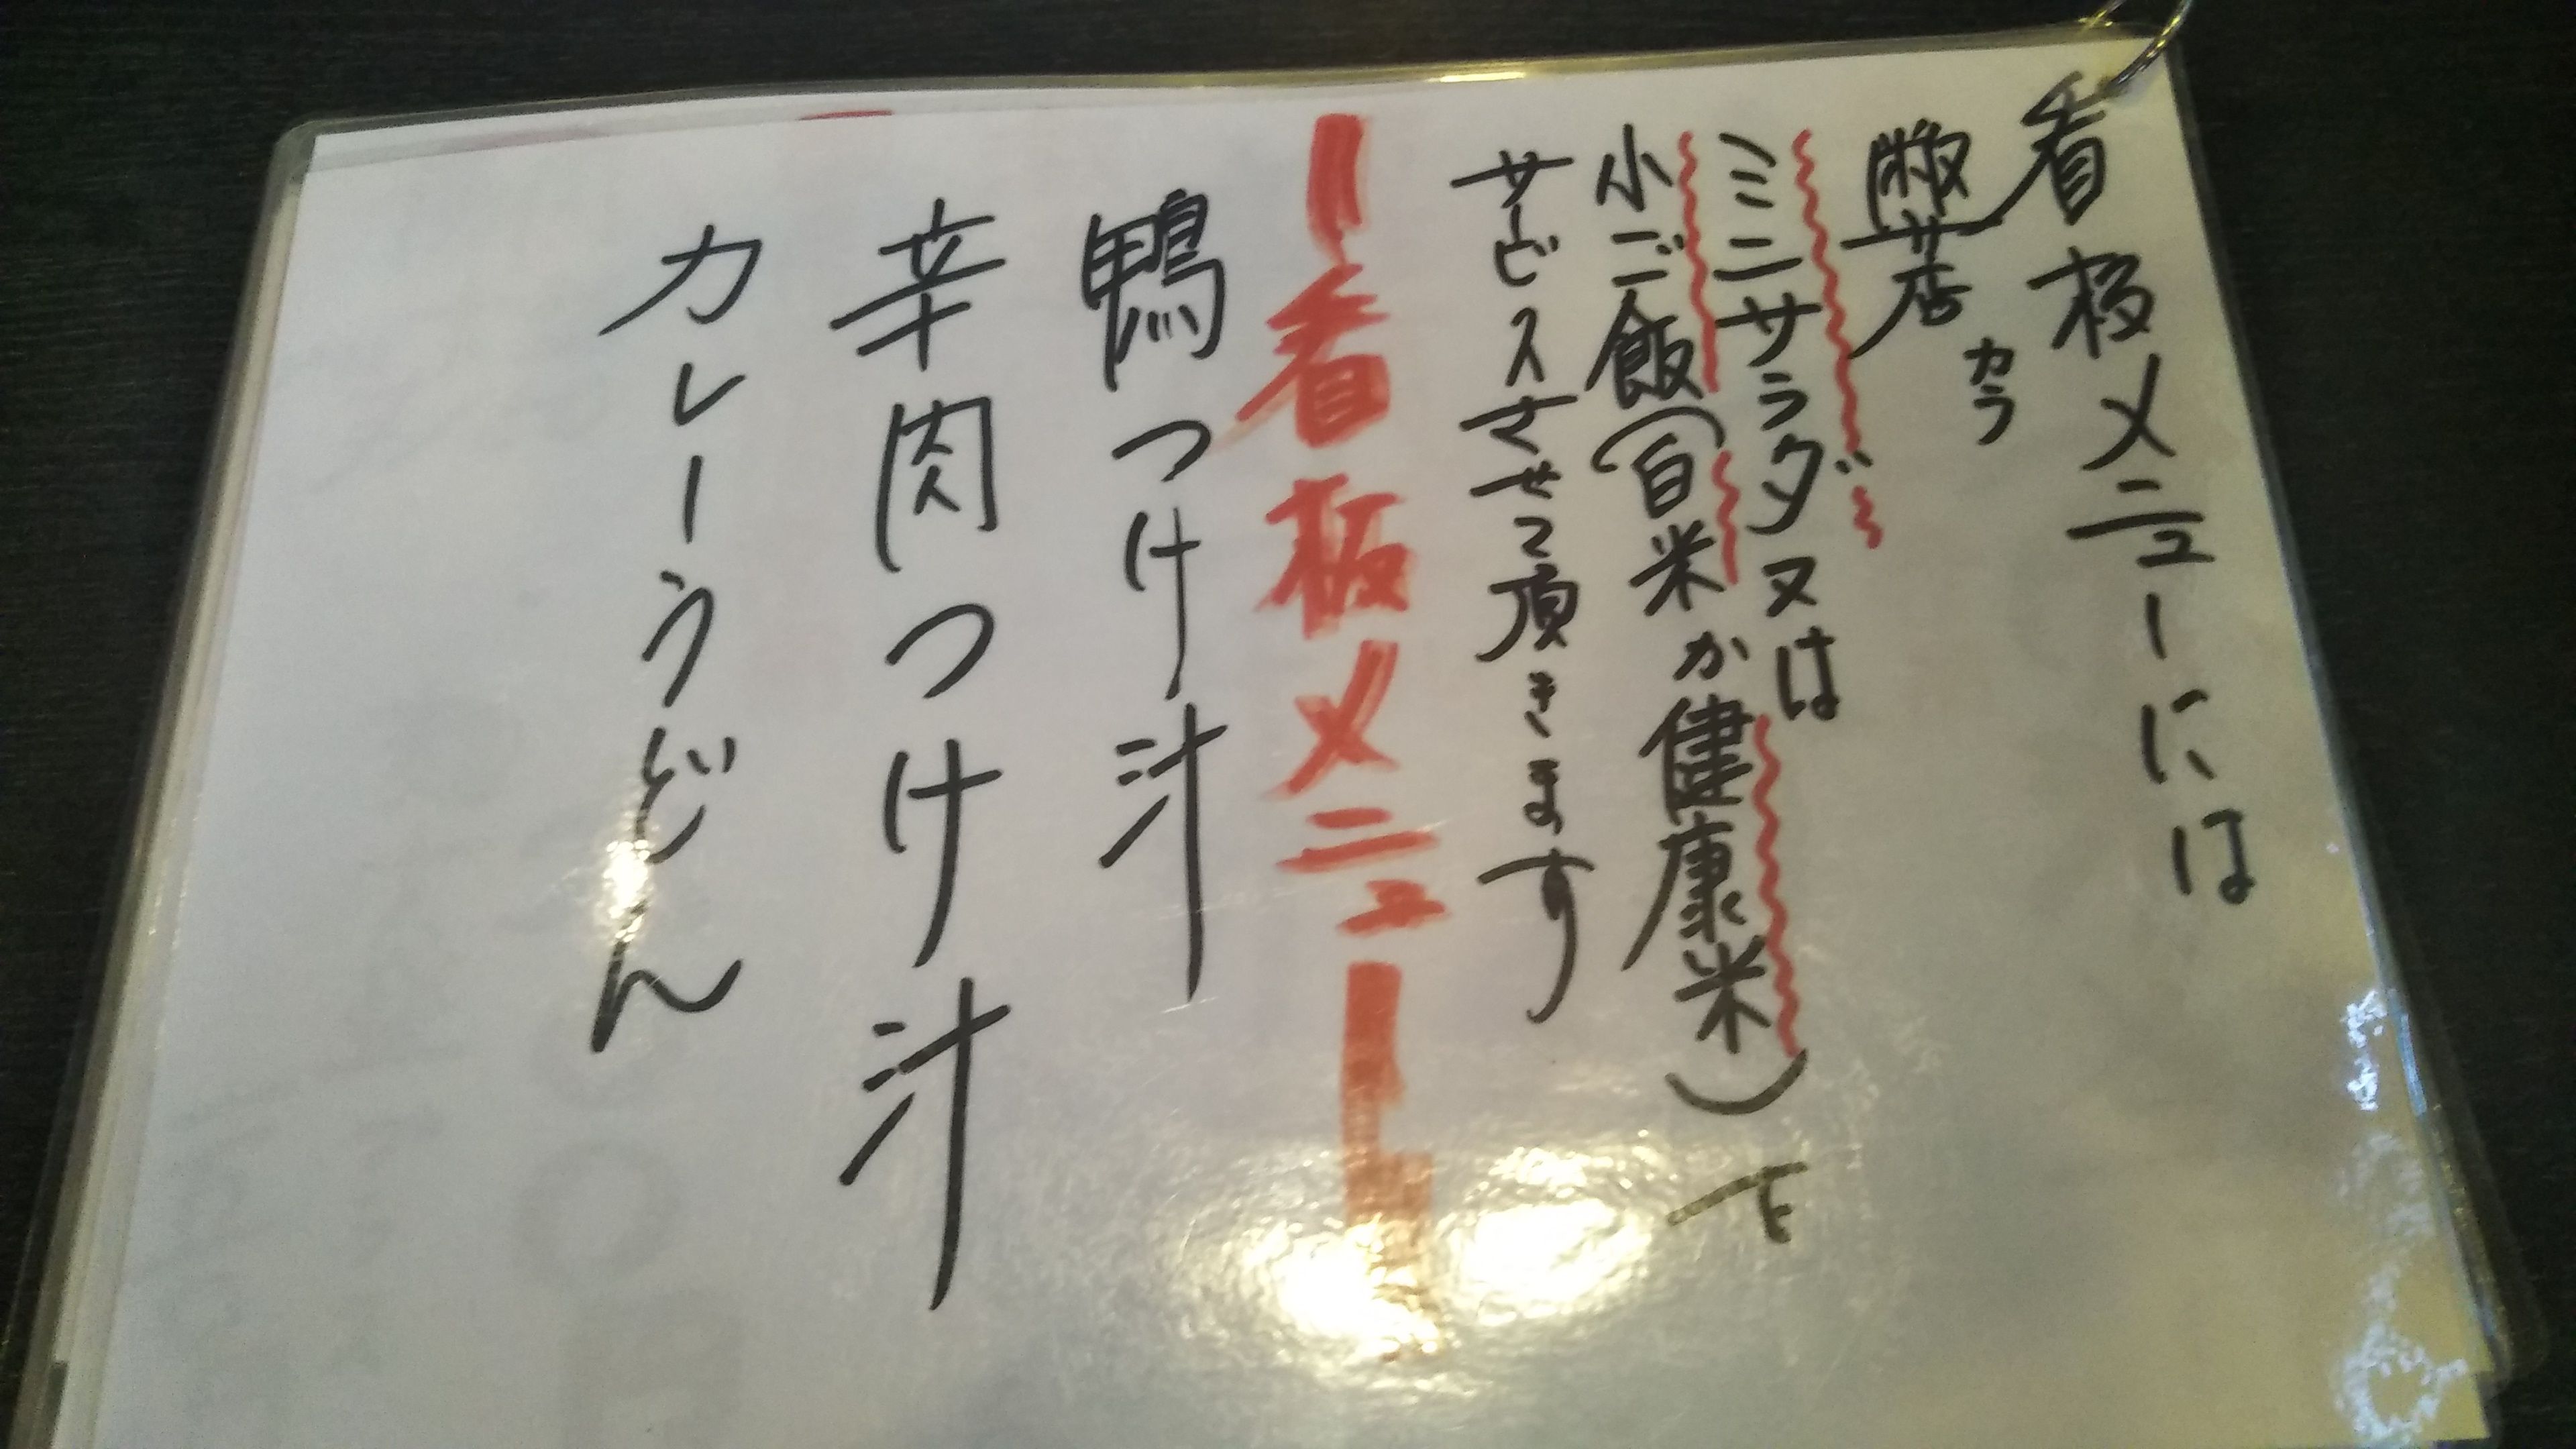 看板メニューには
当店カラ
ミニサラダ又は
小ご飯(白米か健康米)を
サービスさせて頂きます
看板メニュー
鴨つけ汁
辛肉つけ汁
カレーうどん